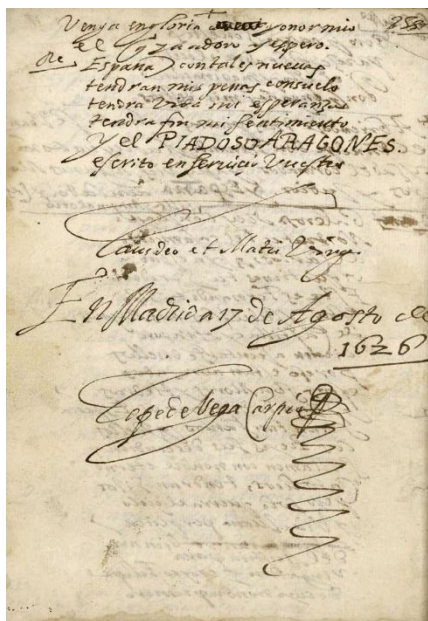 Venga en gloria y onor mio
253
el q adoro y espero.
Re España con tales nuevas
tendran mis penas consuelo
tendra vida mi esperanza
tendra fin mi sentimiento
y el PIADOSO ARAGONES.
escrito en servicio Vuestro
Laus deo et Matri Virgi
En Madrid a 17 de Agosto de
1626
Lope de Vega Carpio